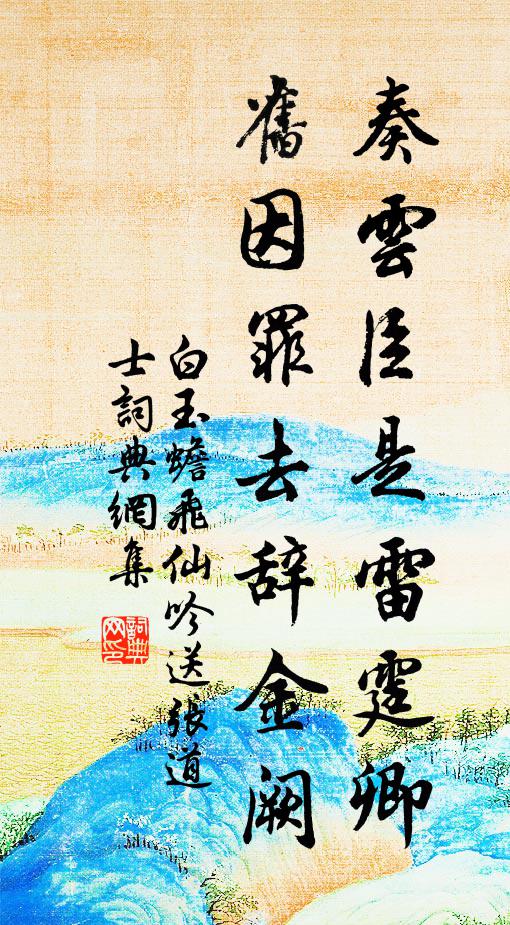 奏雲臣是雷霆卿
舊因罪去辞金闕
白玉蟾飛仙吟送張道
士詞典網集
詞典
网印